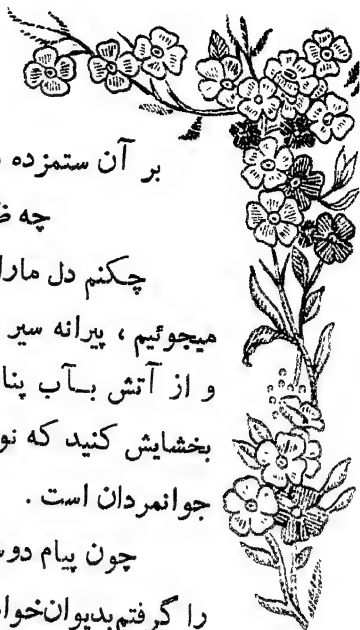 بر آن ستمزده
چه
چکنم دل مارا
میجوئیم ، پیرانه سیر
و از آتش بـآب پنا
بخشایش کنید که نو
جوانمردان است .
چون پیام دو
را گرفتم بدیوان خوا